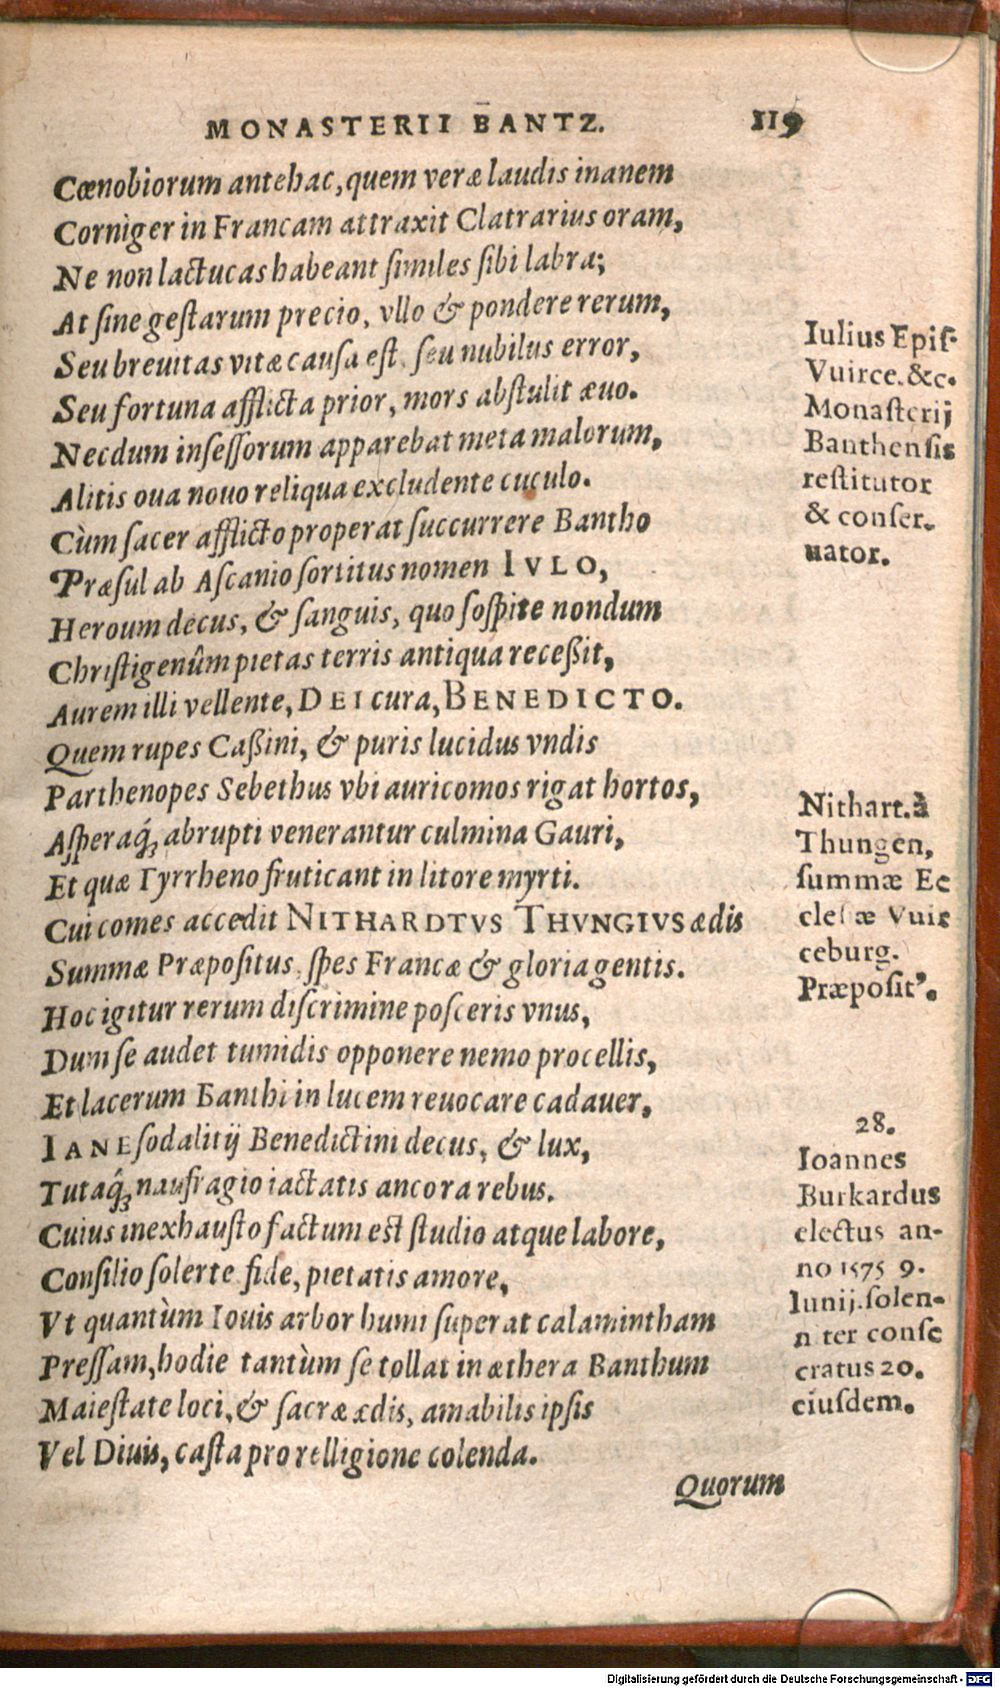 MONASTERII BANTZ. 119
Cœnobiorum antehac, quem veræ laudis inanem
Corniger in Francam attraxit Clatrarius oram,
Ne non lactucas habeant similes sibi labra;
At sine gestarum precio, vllo & pondere rerum,
Seu breuitas vitæ causa est, seu nubilus error,
Seu fortuna afflicta prior, mors abstulit æuo.
Necdum insessorum apparebat meta malorum,
Alitis oua nouo reliqua excludente cuculo.
Cùm sacer afflicto properat succurrere Bantho
Præsul ab Ascanio sortitus nomen IVLO,
Heroum decus, & sanguis, quo sospite nondum
Christigenûm pietas terris antiqua receßit,
Aurem illi vellente, DEI cura, BENEDICTO.
Quem rupes Caßini, & puris lucidus vndis
Parthenopes Sebethus vbi auricomos rigat hortos,
Asperaq́; abrupti venerantur culmina Gauri,
Et quæ Tyrrheno fruticant in litore myrti.
Cui comes accedit NITHARDTVS THVNGIVS ædis
Summæ Præpositus, spes Francæ & gloria gentis.
Hoc igitur rerum discrimine posceris vnus,
Dum se audet tumidis opponere nemo procellis,
Et lacerum Banthi in lucem reuocare cadauer,
IANE sodalitij Benedictini decus, & lux,
Tutaq́; naufragio iactatis ancora rebus.
Cuius inexhausto factum est studio atque labore,
Consilio solerte fide, pietatis amore,
Vt quantùm Iouis arbor humi superat calamintham
Pressam, hodie tantùm se tollat in æthera Banthum
Maiestate loci, & sacræ ædis, amabilis ipsis
Vel Diuis, casta pro relligione colenda.
Quorum
Iulius Epis-
Vuirce. &c.
Monasterij
Banthensis
restitutor
& conser-
uator.
Nithart. à
Thungen,
summæ Ec
clesiæ Vuir
ceburg.
Præposit⁹.
28.
Ioannes
Burkardus
electus an-
no 1575 9.
Iunij. solen-
n ter conse
cratus 20.
eiusdem.
Digitalisierung gefördert durch die Deutsche Forschungsgemeinschaft - DFG